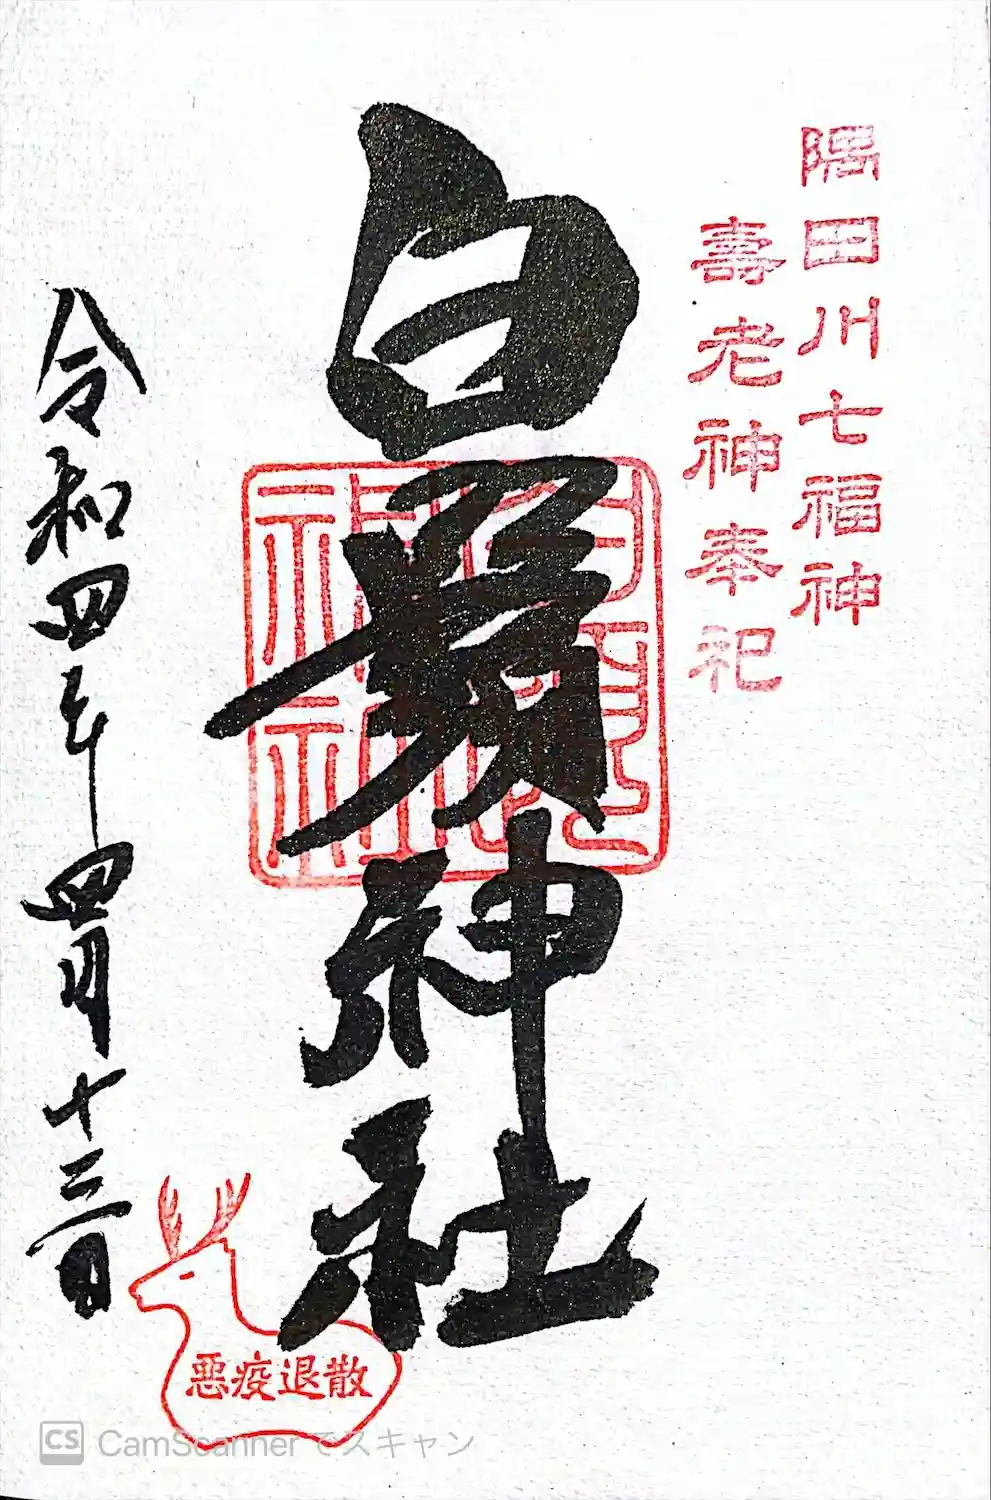 隅田川七福神
壽老神奉祀
白鬚神社
白鬚神社
令和四年四月十三日
悪疫退散
CS CamScannerでスキャン